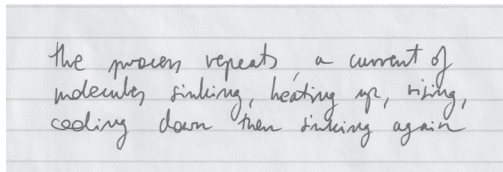 the process repeats, a current of
molecules sinking, heating up, rising,
cooling down then sinking again